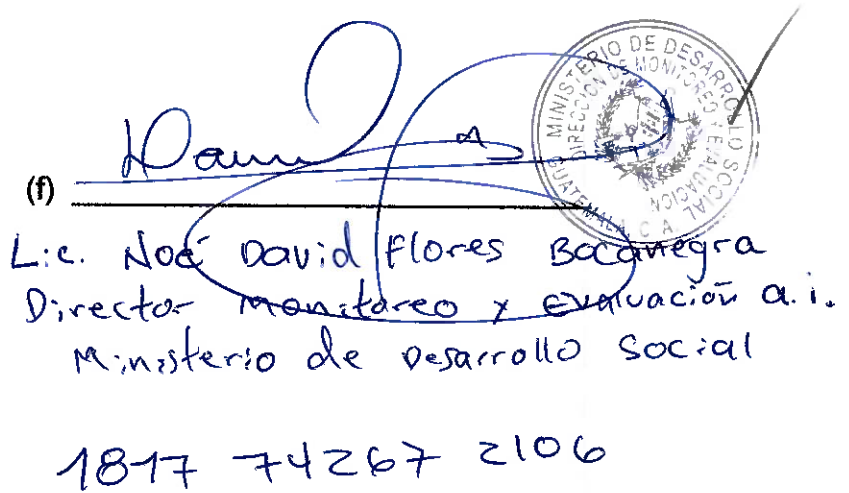 MINISTERIO DE DESARROLLO SOCIAL
DIRECCION DE MONITOREO Y EVALUACION
GUATEMALA, C. A.
(f)
Lic. Noé David Flores Bocanegra
Director Monitoreo y Evaluación a.i.
Ministerio de Desarrollo Social
1817 74267 2106